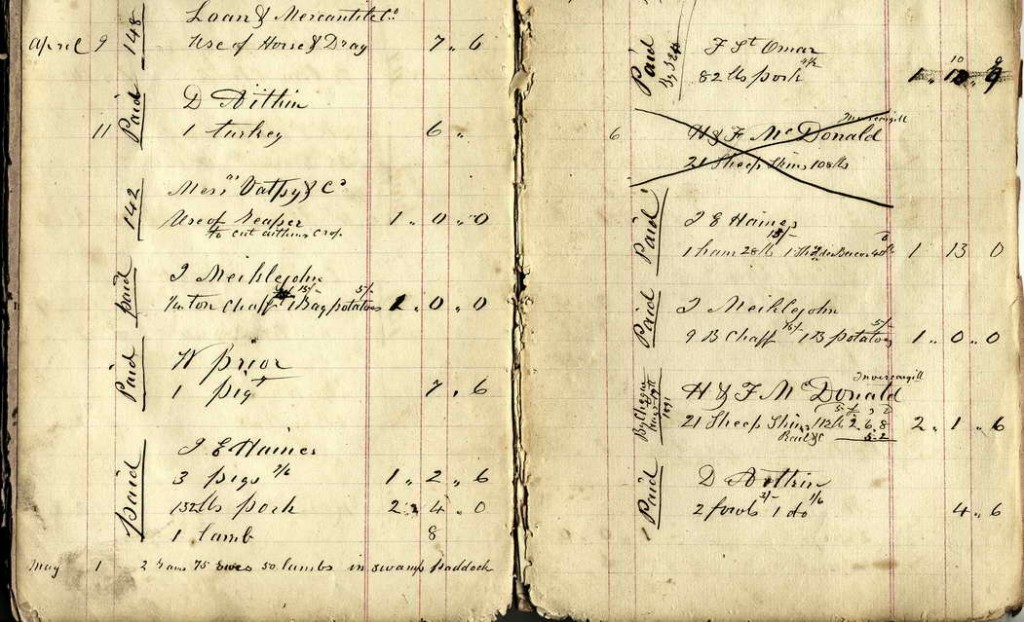 148
Loan & Mercantile Co
April 9 Use of Horse & Dray 7 " 6
Paid
D Aitkin
11 1 turkey 6 "
142
Messrs Valpy & Co
Use of Reaper 1 " 0 " 0
to cut aitkins crop
paid
J Meiklejohn
15/- 5/-
ton Chaff 1 Bag potatoes 1 " 0 " 0
Paid
W prior
1 pig 7 " 6
paid
J E Haines
3 pigs 7/6 1 " 2 " 6
132 lbs pork 2 " 4 " 0
1 lamb 8
May 1 2 rams 75 ewes 50 lambs in swamp paddock
Paid
F St Omar
82 lbs pork 1 " 10 " 9
Invercargill
6 H & F McDonald
21 Sheep Skins 108 lbs
Paid
J E Haines
15/-
1 ham 28 lb 1 1 13 0
Paid
J Meiklejohn
15/- 5/-
9 B Chaff 1 B potatoes 1 " 0 " 0
By Cheque
1891
Invercargill
H & F McDonald
21 Sheep Skins 112 lb 2 " 6 " 8 2 " 1 " 6
Rail &c 5 " 2
Paid
D Aitkin
2/- 1/6
2 fowls 1 do 4 " 6